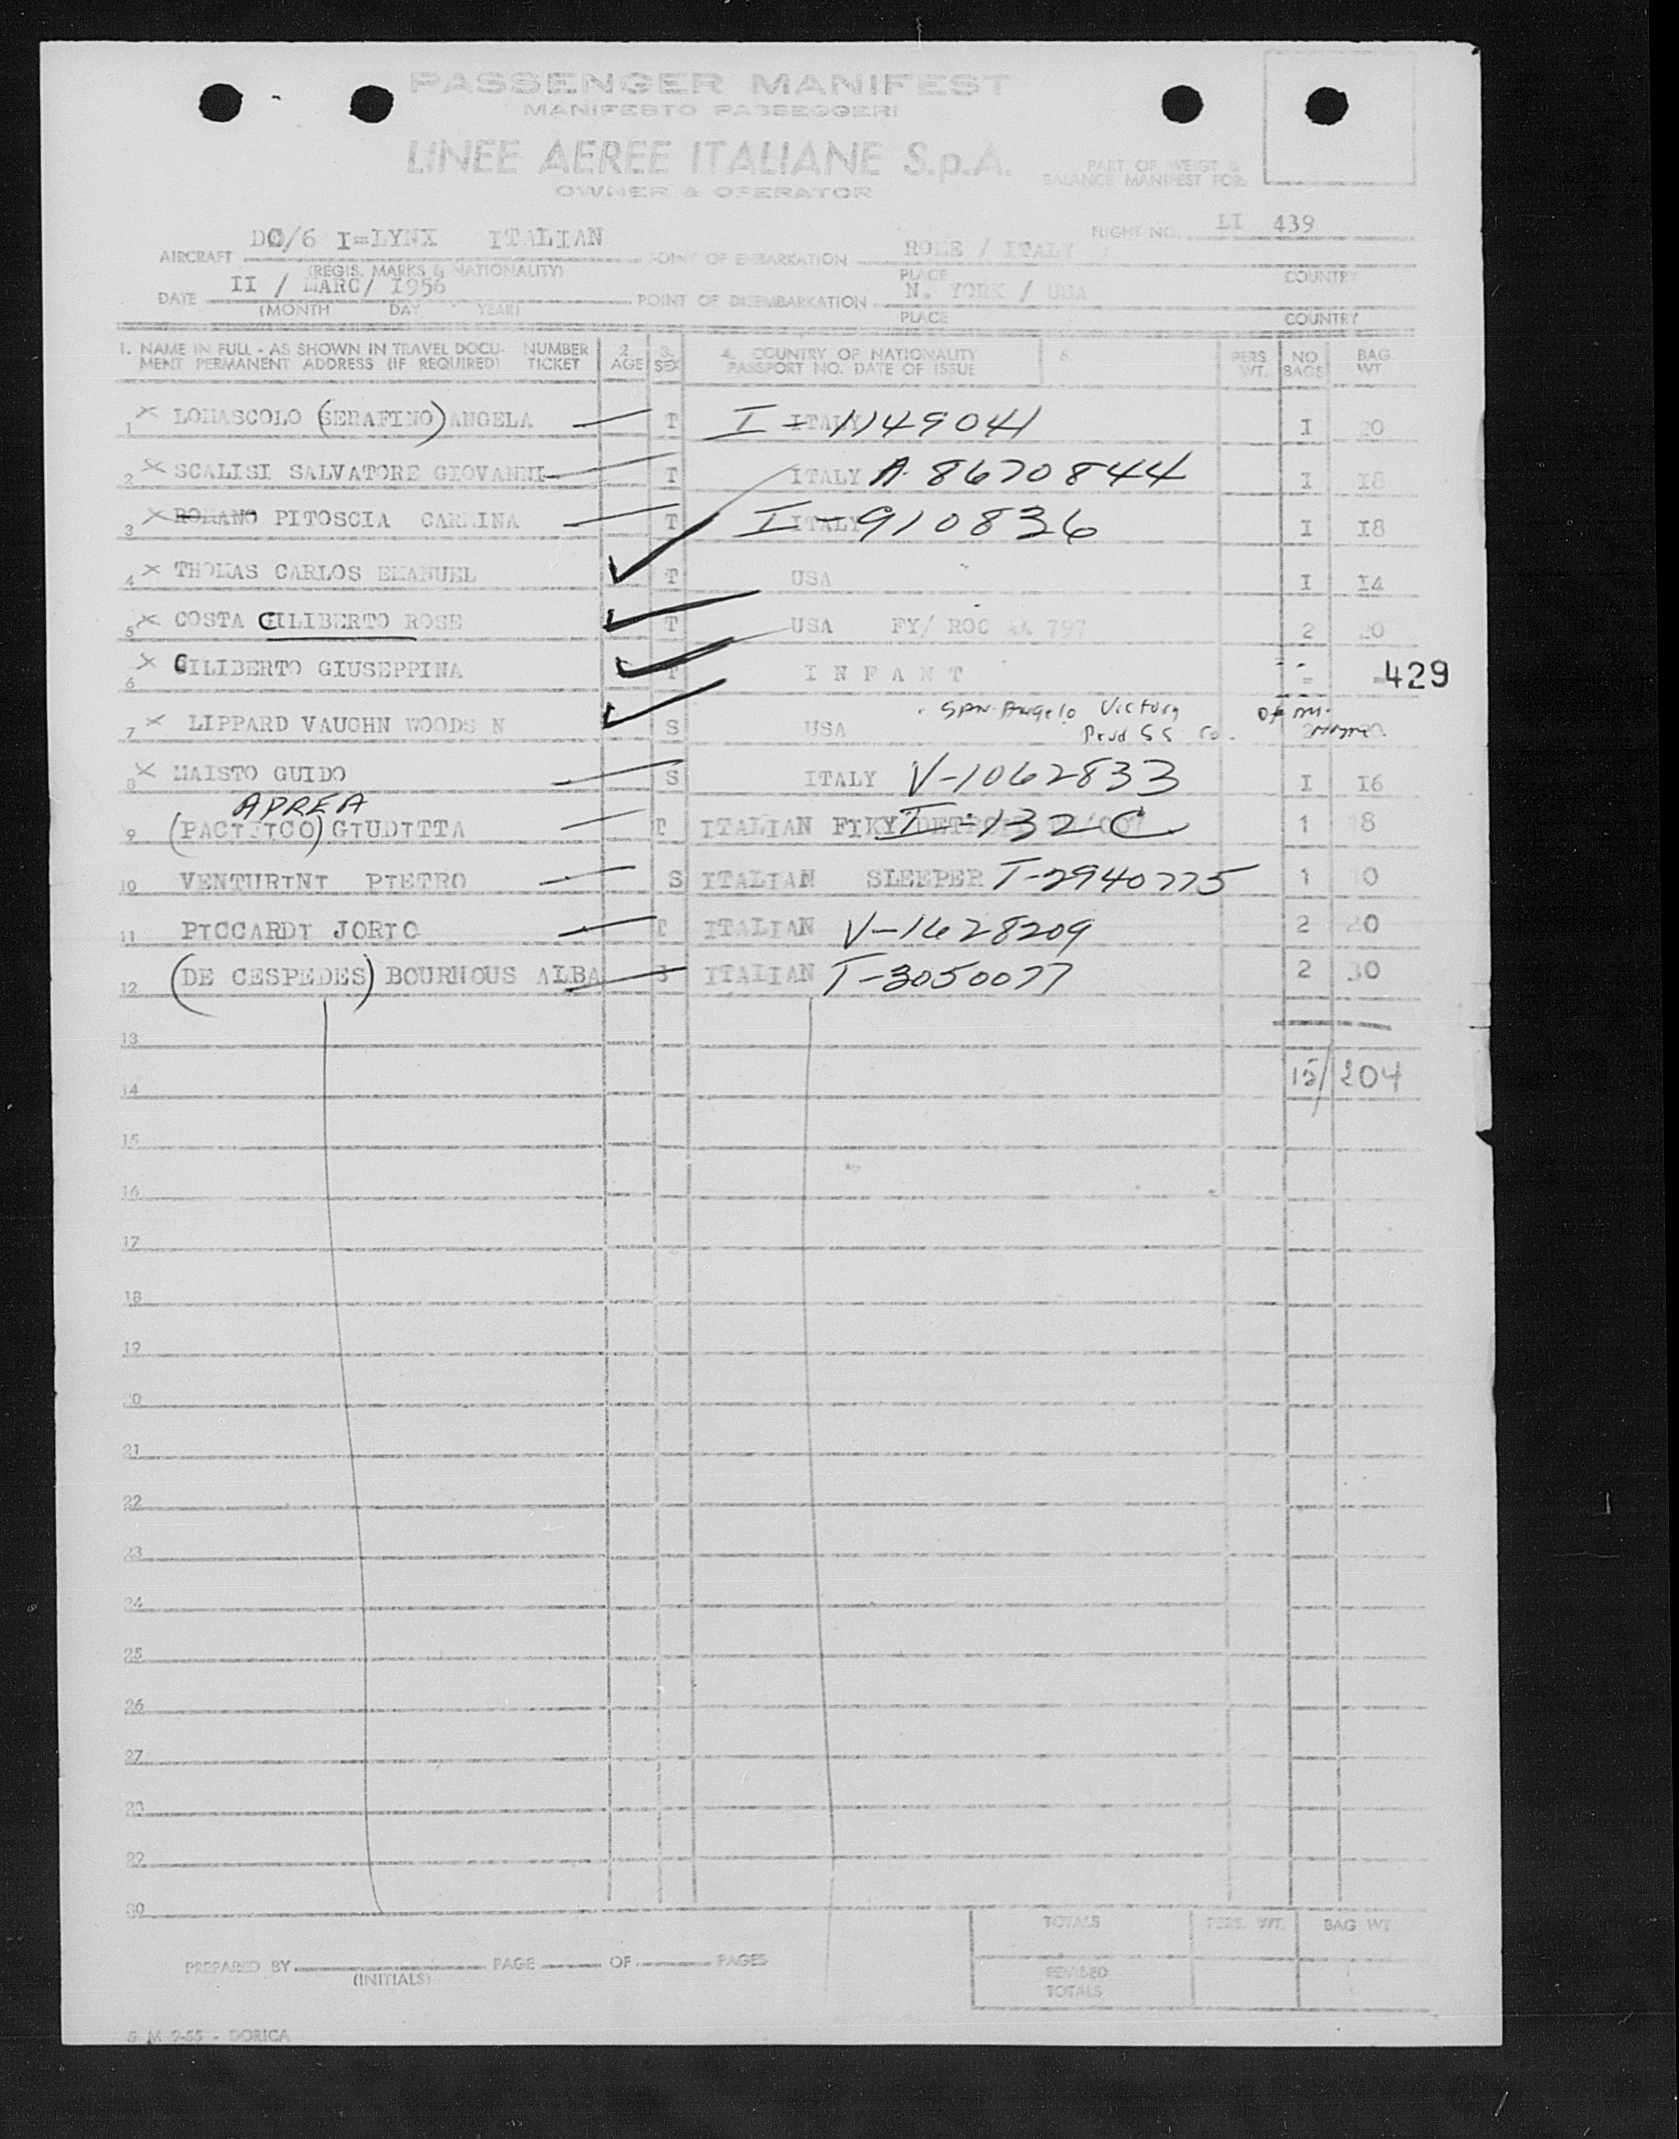 PASSENGER MANIFEST
MANIFESTO PASSEGGERI
LINEE AEREE ITALIANE S.p.A.
OWNER & OPERATOR
PART OF WEIGT &
BALANCE MANIFEST FOR:
FLIGHT NO. LI 439
AIRCRAFT DC/6 I=LYNX ITALIAN
(REGIS. MARKS & NATIONALITY)
POINT OF EMBARKATION ROME / ITALY
PLACE COUNTRY
DATE II / MARC/ I956
(MONTH DAY YEAR)
POINT OF DISEMBARKATION N. YORK / USA
PLACE COUNTRY
1. NAME IN FULL - AS SHOWN IN TRAVEL DOCU- NUMBER 2. 3. 4. COUNTRY OF NATIONALITY 6. PERS. NO. BAG.
MENT PERMANENT ADDRESS (IF REQUIRED) TICKET AGE SEX PASSPORT NO. DATE OF ISSUE WT. BAGS WT.
1 x LOMASCOLO (SERAFINO) ANGELA T ITALY I-1149041 I 20
2 x SCALISI SALVATORE GIOVANNI T ITALY A-8670844 I I8
3 x ROMANO PITOSCIA CARMINA T ITALY I-910836 I I8
4 x THOMAS CARLOS EMANUEL ✓ T USA I I4
5 x COSTA CILIBERTO ROSE ✓ T USA FY/ ROC 797 2 20
6 x CILIBERTO GIUSEPPINA ✓ T I N F A N T = = 429
7 x LIPPARD VAUGHN WOODS N ✓ S USA SAN Angelo Victory
8 x MAISTO GUIDO S ITALY V-1062833 I I6
APREA
9 (PACIFICO) GIUDITTA T ITALIAN I-132C 1 18
10 VENTURINI PIETRO S ITALIAN SLEEPER T-2940775 1 10
11 PICCARDI JORIO T ITALIAN V-1628209 2 20
12 (DE CESPEDES) BOURHOUS ALBA S ITALIAN T-3050077 2 30
13
15/ 204
14
15
16
17
18
19
20
21
22
23
24
25
26
27
28
29
30
TOTALS PERS. WT. BAG WT.
PREPARED BY PAGE OF PAGES
(INITIALS)
REVISED
TOTALS
M 9-55 - DORICA